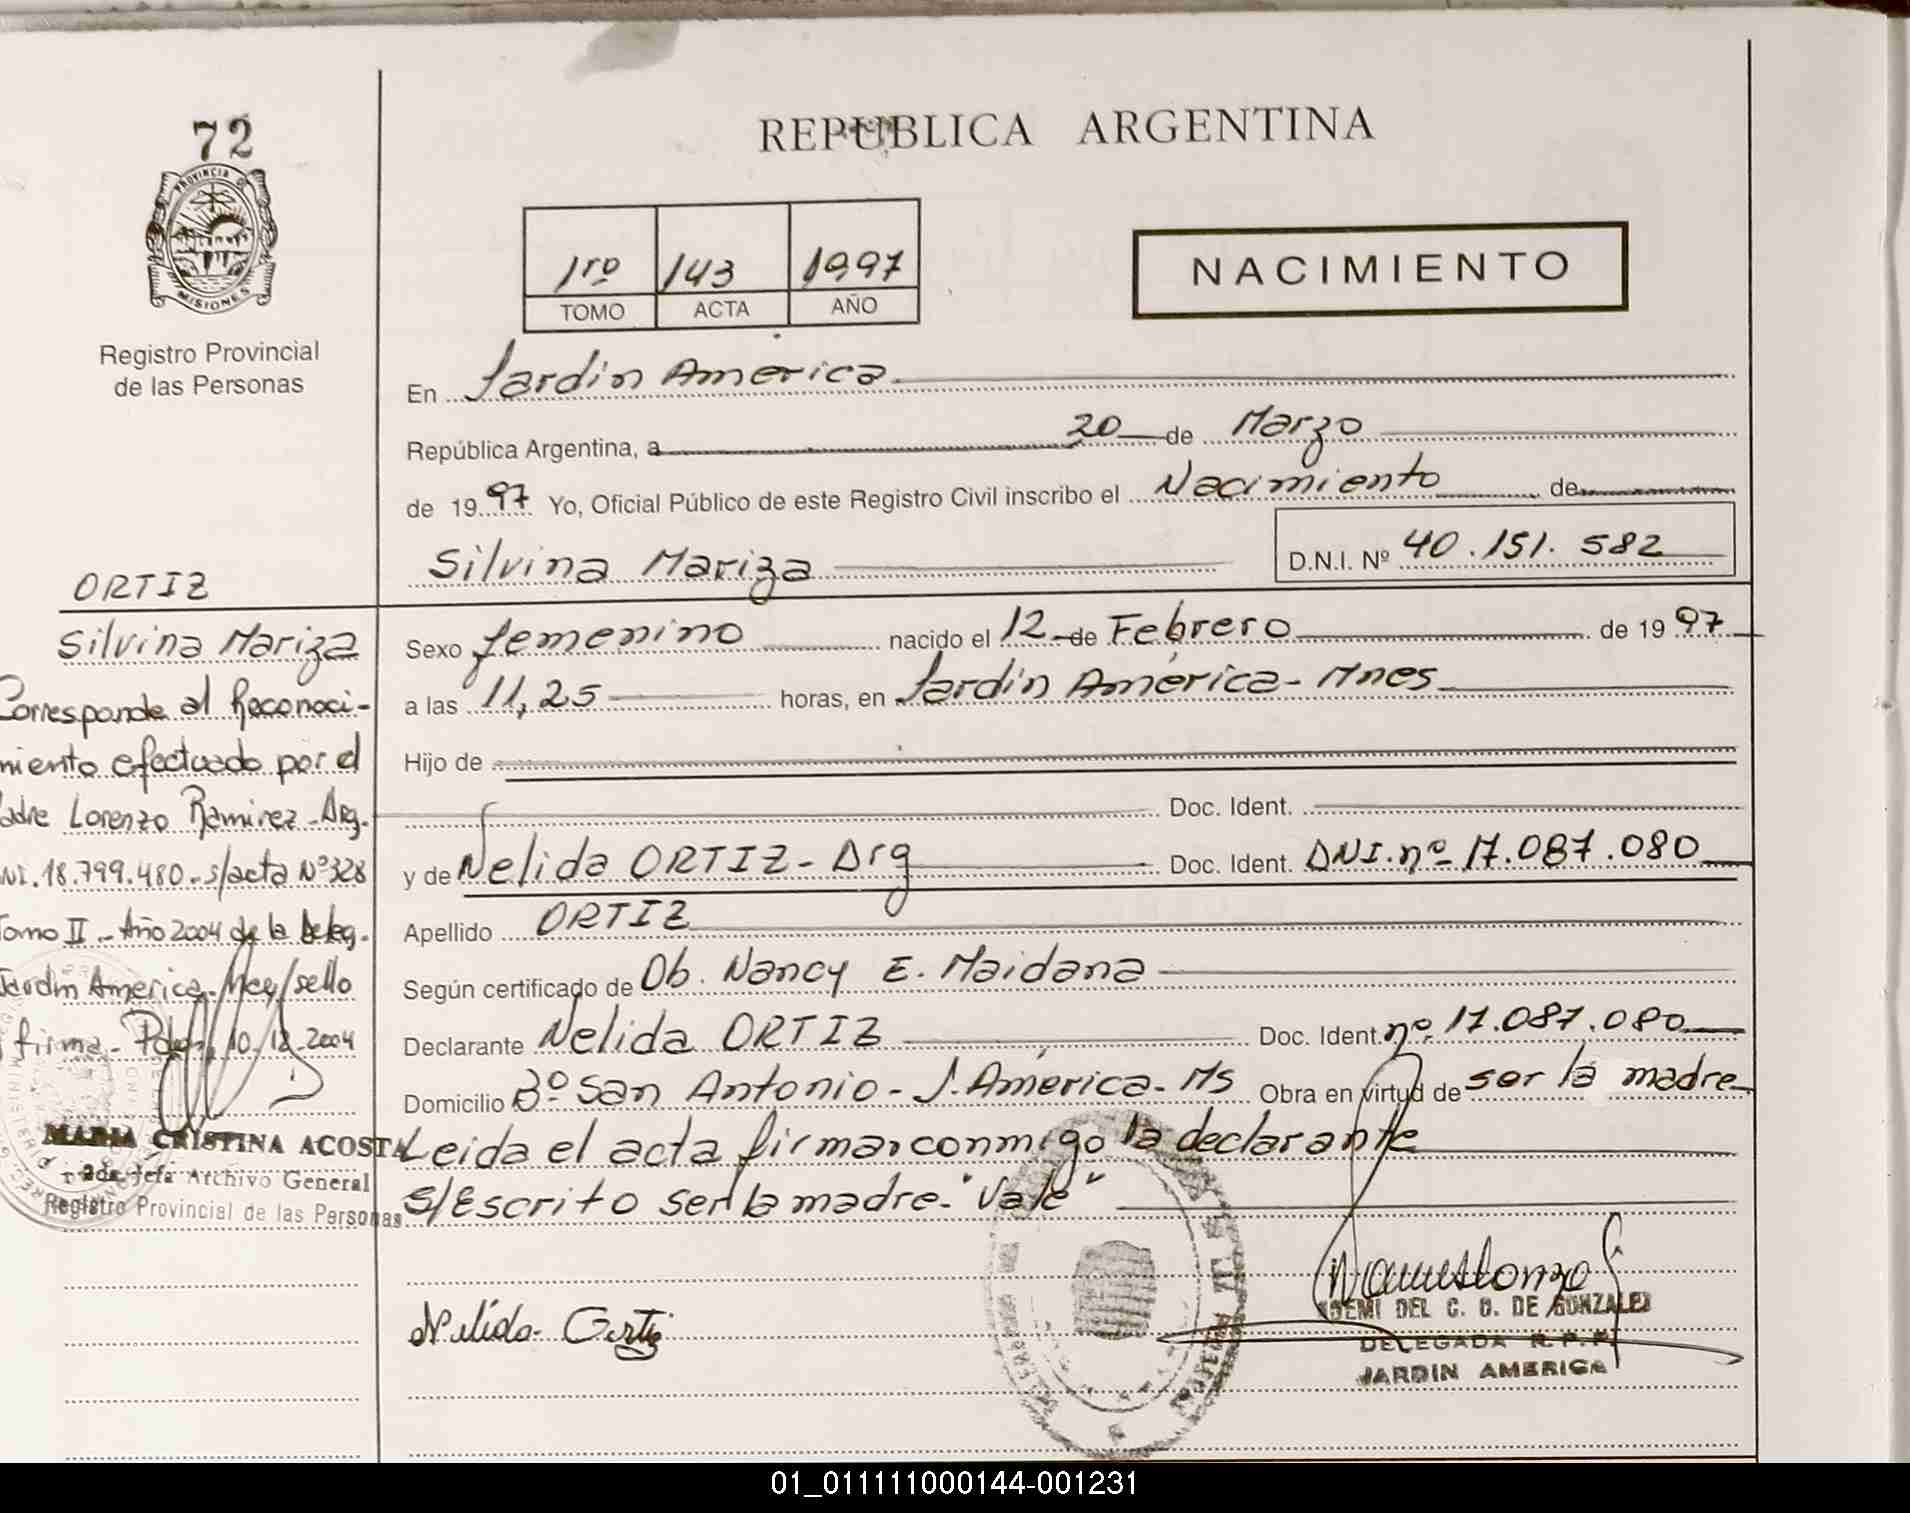 72
PROVINCIA DE
MISIONES
Registro Provincial
de las Personas
REPUBLICA ARGENTINA
1ro 143 1997
TOMO ACTA AÑO
NACIMIENTO
En Jardin America
República Argentina, a 20 de Marzo
de 1997 Yo, Oficial Público de este Registro Civil inscribo el Nacimiento de
Silvina Mariza D.N.I. Nº 40.151.582
Sexo femenino nacido el 12 de Febrero de 1997
a las 11,25 horas, en Jardin América - Mnes
Hijo de
Doc. Ident.
y de Nelida ORTIZ - Arg Doc. Ident. DNI. nº 17.087.080
Apellido ORTIZ
Según certificado de Ob. Nancy E. Maidana
Declarante Nelida ORTIZ Doc. Ident. nº 17.087.080
Domicilio Bº San Antonio - J. América - Ms Obra en virtud de ser la madre
Leida el acta firma conmigo la declarante
S/Escrito ser la madre - "Vale"
Nelida Ortiz
DEL C. D. DE GONZALEZ
DELEGADA R.P.P.
JARDIN AMERICA
ORTIZ
Silvina Mariza
Corresponde al Reconoci-
miento efectuado por el
adre Lorenzo Ramirez - Arg.
NI. 18.799.480 - s/acta Nº 328
Tomo II - Año 2004 de la Deleg.
Jardin America. Hay/sello
firma - Pdas, 10/12 - 2004
MARIA CRISTINA ACOSTA
2da Jefa Archivo General
Registro Provincial de las Personas
01_011111000144-001231